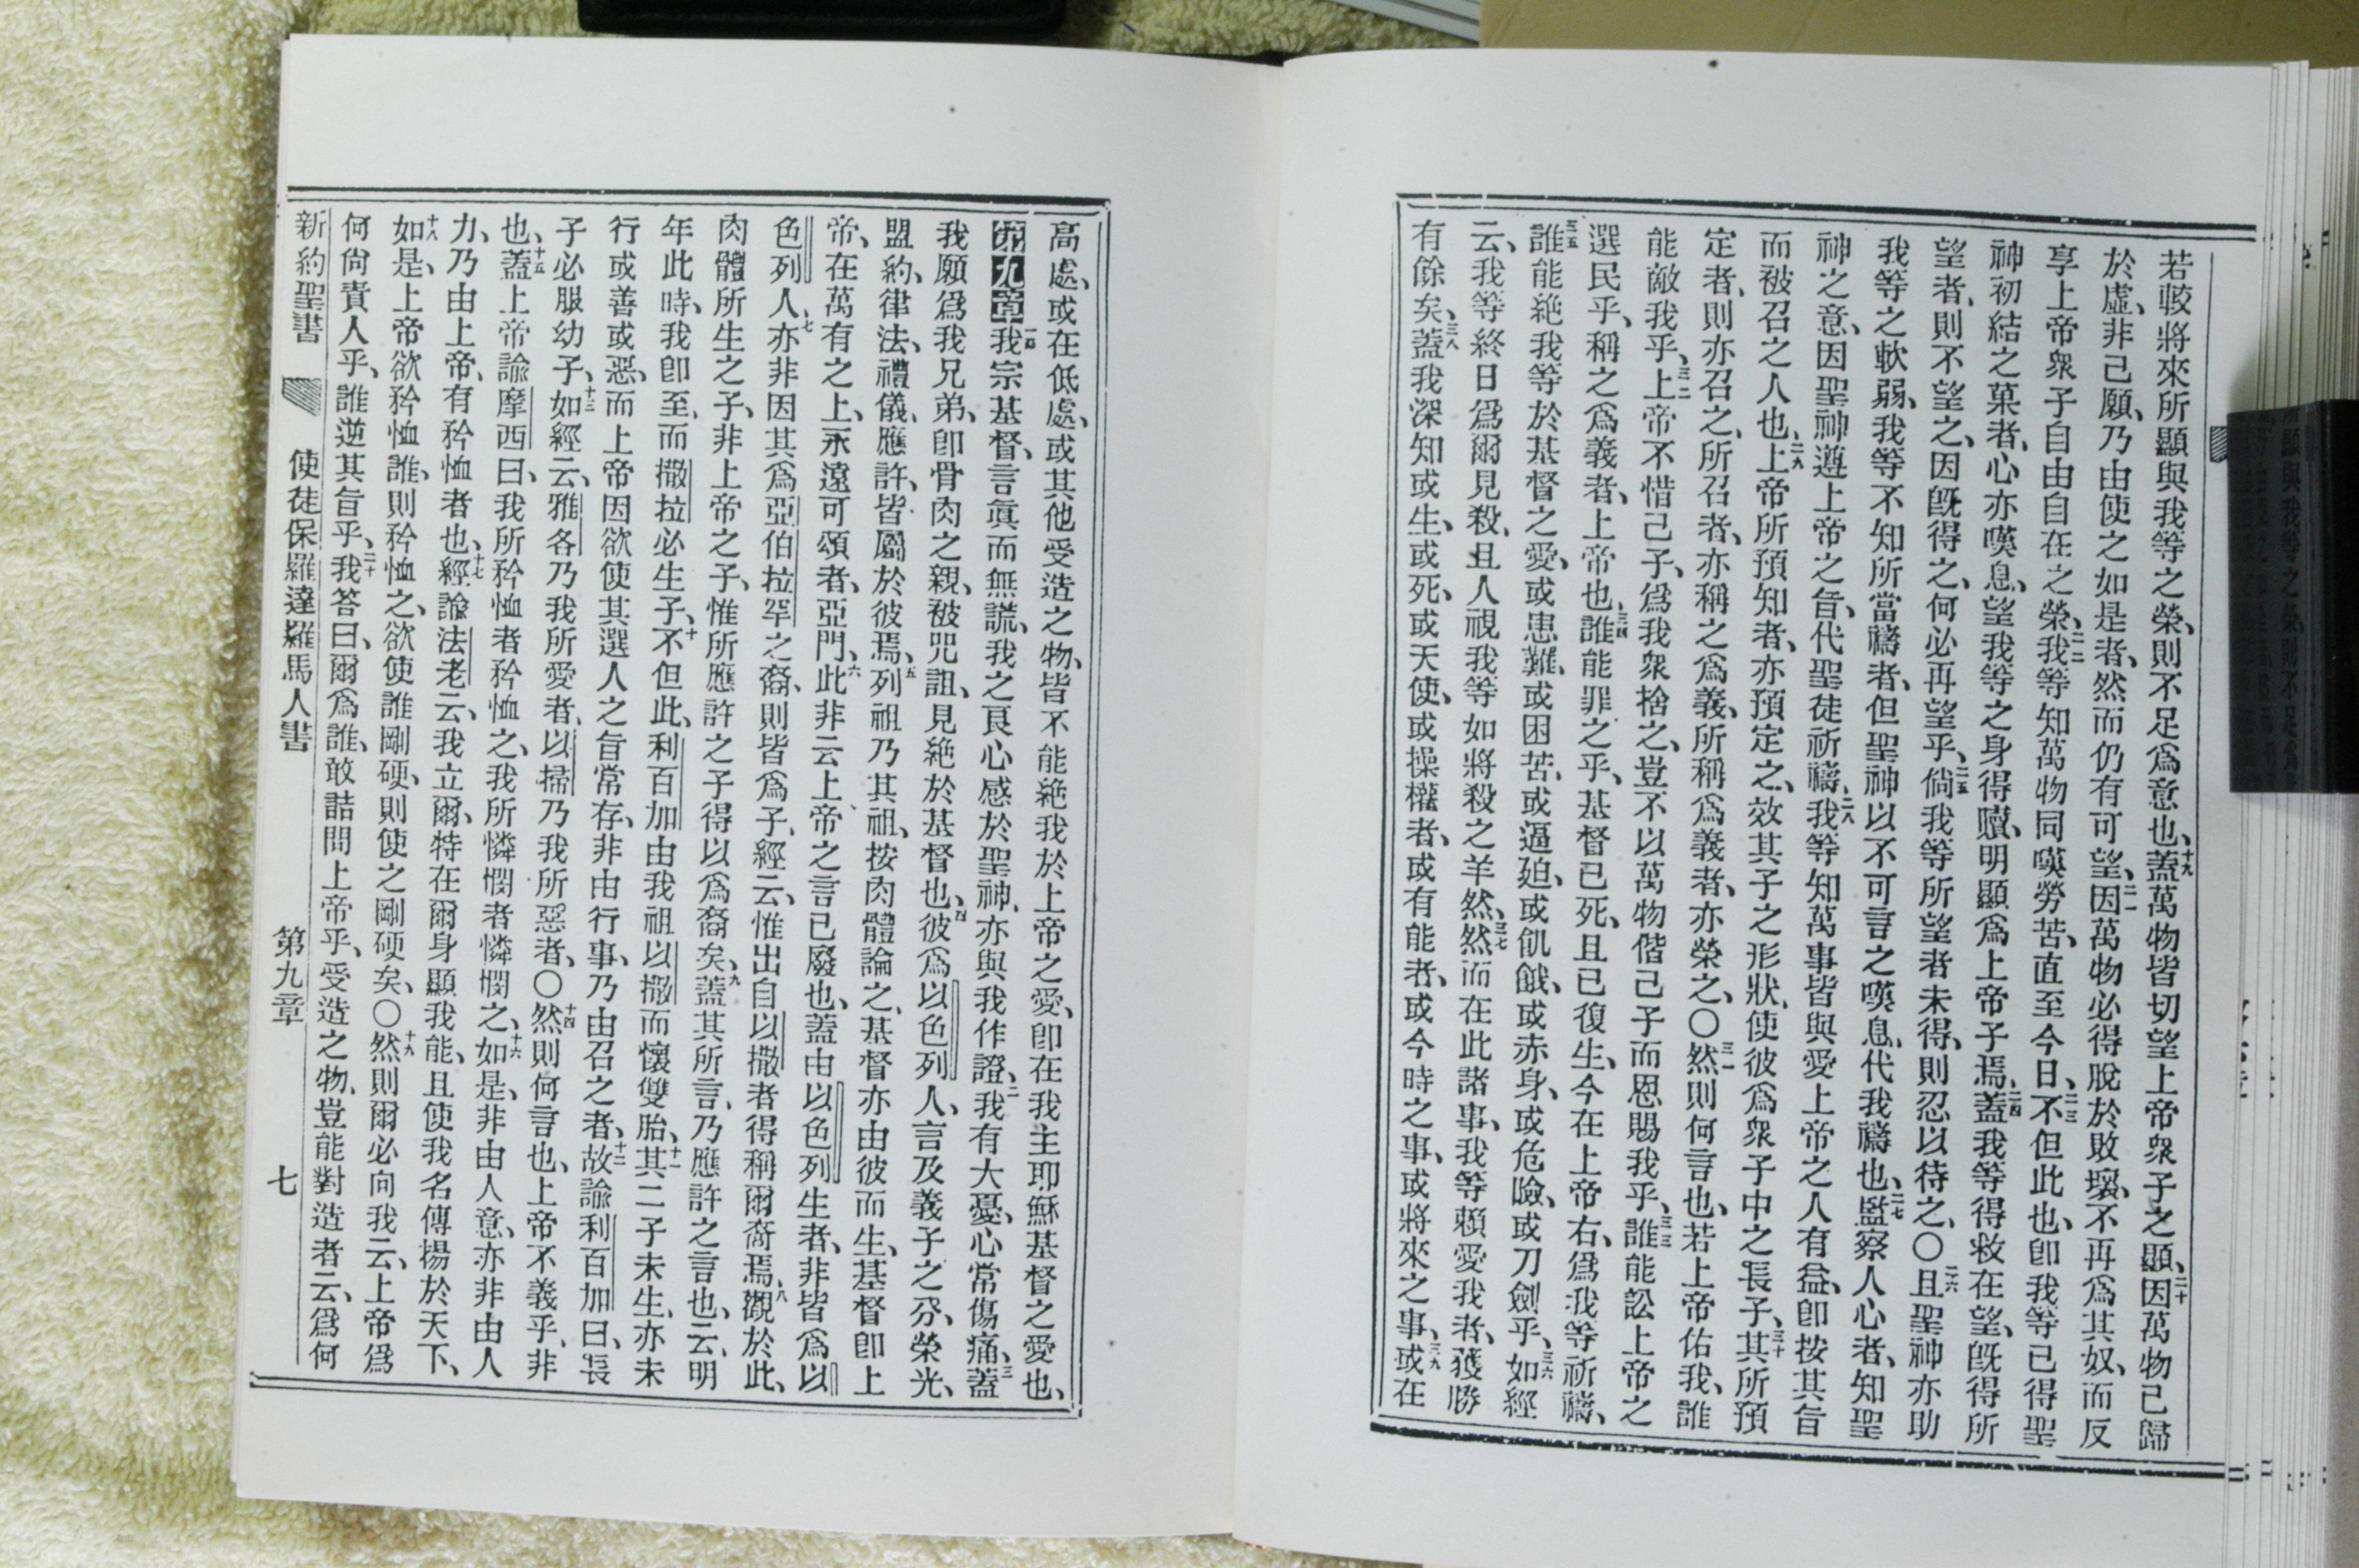 若較將來所顯與我等之榮、則不足爲意也、十九蓋萬物皆切望上帝衆子之顯、二十因萬物已歸
於虛、非己願、乃由使之如是者、然而仍有可望、二一因萬物必得脫於敗壞、不再爲其奴、而反
享上帝衆子自由自在之榮、二二我等知萬物同嘆勞苦、直至今日、二三不但此也、卽我等已得聖
神初結之菓者、心亦嘆息、望我等之身得贖、明顯爲上帝子焉、二四蓋我等得救在望、旣得所
望者、則不望之、因旣得之、何必再望乎、二五倘我等所望者未得、則忍以待之、〇二六且聖神亦助
我等之軟弱、我等不知所當禱者、但聖神以不可言之嘆息、代我禱也、二七監察人心者、知聖
神之意、因聖神遵上帝之旨、代聖徒祈禱、二八我等知萬事皆與愛上帝之人有益、卽按其旨
而被召之人也、二九上帝所預知者、亦預定之、效其子之形狀、使彼爲衆子中之長子、三十其所預
定者、則亦召之、所召者、亦稱之爲義、所稱爲義者、亦榮之、〇三一然則何言也、若上帝佑我、誰
能敵我乎、三二上帝不惜己子、爲我衆捨之、豈不以萬物偕己子而恩賜我乎、三三誰能訟上帝之
選民乎、稱之爲義者、上帝也、三四誰能罪之乎、基督已死、且已復生、今在上帝右、爲我等祈禱、
三五誰能絕我等於基督之愛、或患難、或困苦、或逼廹、或飢餓、或赤身、或危險、或刀劍乎、三六如經
云、我等終日爲爾見殺、且人視我等如將殺之羊然、三七然而在此諸事、我等賴愛我者、獲勝
有餘矣、三八蓋我深知或生、或死、或天使、或操權者、或有能者、或今時之事、或將來之事、三九或在
高處、或在低處、或其他受造之物、皆不能絕我於上帝之愛、卽在我主耶穌基督之愛也、
第九章一我宗基督、言眞而無謊、我之良心感於聖神、亦與我作證、二我有大憂、心常傷痛、三蓋
我願爲我兄弟、卽骨肉之親、被咒詛、見絕於基督也、四彼爲以色列人、言及義子之分、榮光、
盟約、律法、禮儀、應許、皆屬於彼焉、五列祖乃其祖、按肉體論之、基督亦由彼而生、基督卽上
帝、在萬有之上、永遠可頌者、亞門、六此非云上帝之言已廢也、蓋由以色列生者、非皆爲以
色列人、七亦非因其爲亞伯拉罕之裔、則皆爲子、經云、惟出自以撒者得稱爾裔焉、八觀於此、
肉體所生之子、非上帝之子、惟所應許之子得以爲裔矣、九蓋其所言、乃應許之言也、云、明
年此時、我卽至、而撒拉必生子、十不但此、利百加由我祖以撒而懷雙胎、十一其二子未生、亦未
行或善或惡、而上帝因欲使其選人之旨常存、非由行事、乃由召之者、十二故諭利百加曰、長
子必服幼子、十三如經云、雅各乃我所愛者、以掃乃我所惡者、〇十四然則何言也、上帝不義乎、非
也、十五蓋上帝諭摩西曰、我所矜恤者矜恤之、我所憐憫者憐憫之、十六如是、非由人意、亦非由人
力、乃由上帝、有矜恤者也、十七經諭法老云、我立爾、特在爾身顯我能、且使我名傳揚於天下、
十八如是、上帝欲矜恤誰、則矜恤之、欲使誰剛硬、則使之剛硬矣、〇十九然則爾必向我云、上帝爲
何尙責人乎、誰逆其旨乎、二十我答曰、爾爲誰、敢詰問上帝乎、受造之物、豈能對造者云、爲何
新約聖書 使徒保羅達羅馬人書 第九章 七